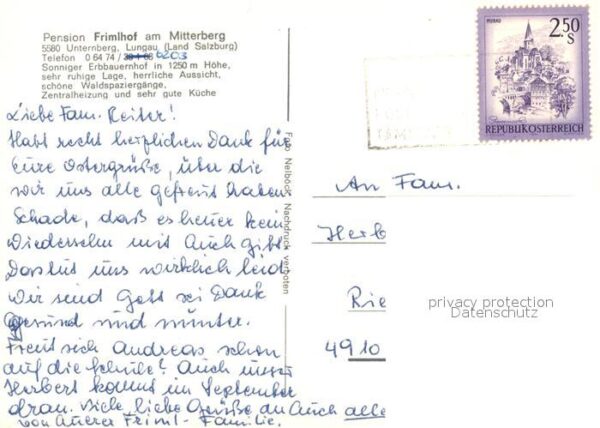 Pension Frimlhof am Mitterberg
5580 Unternberg, Lungau (Land Salzburg)
Telefon 0 64 74 / 6203
Sonniger Erbbauernhof in 1250 m Höhe,
sehr ruhige Lage, herrliche Aussicht,
schöne Waldspaziergänge,
Zentralheizung und sehr gute Küche
Liebe Fam. Reiter!
Habt recht herzlichen Dank für
Eure Ostergrüße, über die
wir uns alle gefreut haben.
Schade, daß es heuer kein
Wiedersehn mit Auch gibt.
Das tut uns wirklich leid.
Wir sind Gott sei Dank
gesund und munter.
Freut sich Andreas schon
auf die Schule? Auch unser
Herbert kommt im September
dran. Viele liebe Grüße an Auch alle
von Auerer Friml-Familie.
Foto: Neilböck Nachdruck verboten
MURAU
2.50
S
REPUBLIK ÖSTERREICH
An Fam.
Herb
Rie
4910
privacy protection
Datenschutz